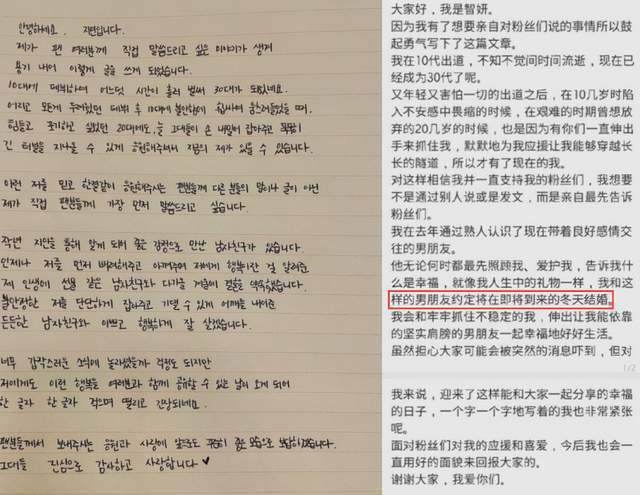 안녕하세요. 지연입니다.
제가 팬 여러분께 직접 말씀드리고 싶은 이야기가 생겨
용기 내어 이렇게 글을 쓰게 되었습니다.
10대에 데뷔하여 어느덧 시간이 흘러 벌써 30대가 되었네요.
어리고 모든게 두려웠던 데뷔 후 10대에 불안함에 휩싸여 움츠러들었을 때,
힘들고 포기하고 싶었던 20대에도, 늘 그대들이 손 내밀어 잡아주고 묵묵히
긴 터널을 지나올 수 있게 응원해주셔서 지금의 제가 있을 수 있습니다.
이런 저를 믿고 한결같이 응원해주시는 팬분들께 다른 분들의 말이나 글이 아닌
제가 직접 팬분들께 가장 먼저 말씀드리고 싶습니다.
작년 지인을 통해 알게 되어 좋은 감정으로 만난 남자친구가 있습니다.
언제나 저를 먼저 배려해주고 아껴주며 저에게 행복이란 걸 알려준
제 인생에 선물 같은 남자친구와 다가올 겨울에 결혼을 약속했습니다.
불안정한 저를 단단하게 잡아주고 기댈 수 있게 어깨를 내어준
든든한 남자친구와 이쁘고 행복하게 잘 살겠습니다.
너무 갑작스러운 소식에 놀라셨을까 걱정도 되지만
저에게도 이런 행복을 여러분과 함께 공유할 수 있는 날이 오게 되어
한 글자 한 글자 적으며 떨리고 긴장되네요.
팬분들께서 보내주시는 응원과 사랑에 앞으로도 꾸준히 좋은 모습으로 보답하겠습니다.
그대들 진심으로 감사하고 사랑합니다♥
大家好，我是智妍。
因为我有了想要亲自对粉丝们说的事情所以鼓
起勇气写下了这篇文章。
我在10代出道，不知不觉间时间流逝，现在已
经成为30代了呢。
又年轻又害怕一切的出道之后，在10几岁时陷
入不安感中畏缩的时候，在艰难的时期曾想放
弃的20几岁的时候，也是因为有你们一直伸出
手来抓住我，默默地为我应援让我能够穿越长
长的隧道，所以才有了现在的我。
对这样相信我并一直支持我的粉丝们，我想要
不是通过别人说或是发文，而是亲自最先告诉
粉丝们。
我在去年通过熟人认识了现在带着良好感情交
往的男朋友。
他无论何时都最先照顾我、爱护我，告诉我什
么是幸福，就像我人生中的礼物一样，我和这
样的男朋友约定将在即将到来的冬天结婚。
我会和牢牢抓住不稳定的我，伸出让我能依靠
的坚实肩膀的男朋友一起幸福地好好生活。
虽然担心大家可能会被突然的消息吓到，但对
1/2
我来说，迎来了这样能和大家一起分享的幸福
的日子，一个字一个字地写着的我也非常紧张
呢。
面对粉丝们对我的应援和喜爱，今后我也会一
直用好的面貌来回报大家的。
谢谢大家，我爱你们。